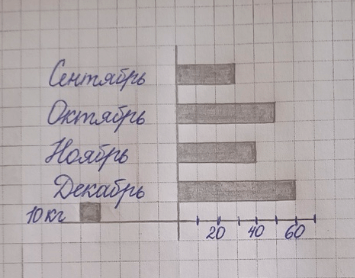 Сентябрь
Октябрь
Ноябрь
Декабрь
10 кг
20 40 60